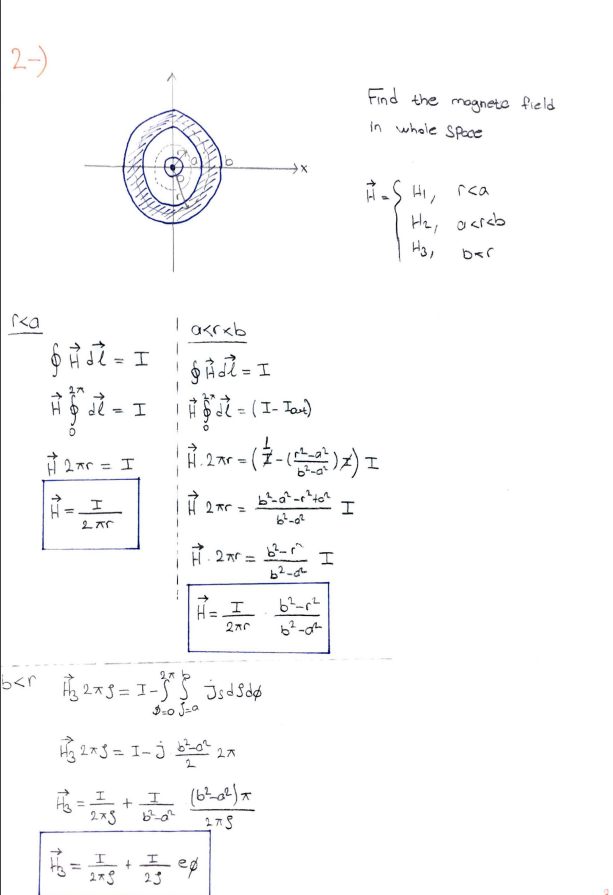 2-)
Find the magnetic field
in whole space
a b x
r
H⃗ = { H1, r<a
H2, a<r<b
H3, b<r
r<a
∮ H⃗ dl⃗ = I
H⃗ ∮₀^2π dl⃗ = I
H⃗ 2πr = I
H⃗ = I / 2πr
a<r<b
∮ H⃗ dl⃗ = I
H⃗ ∮₀^2π dl⃗ = (I - Iout)
H⃗ . 2πr = (1 I - ((r²-a²)/(b²-a²)) I) I
H⃗ 2πr = (b²-a²-r²+a²)/(b²-a²) I
H⃗ . 2πr = (b²-r²)/(b²-a²) I
H⃗ = I/2πr . (b²-r²)/(b²-a²)
b<r
H⃗3 2πρ = I - ∫_ϕ=0^2π ∫_ρ=a^b jρdρdϕ
H⃗3 2πρ = I - j (b²-a²)/2 2π
H⃗3 = I/2πρ + I/(b²-a²) (b²-a²)π/2πρ
H⃗3 = I/2πρ + I/2ρ eϕ